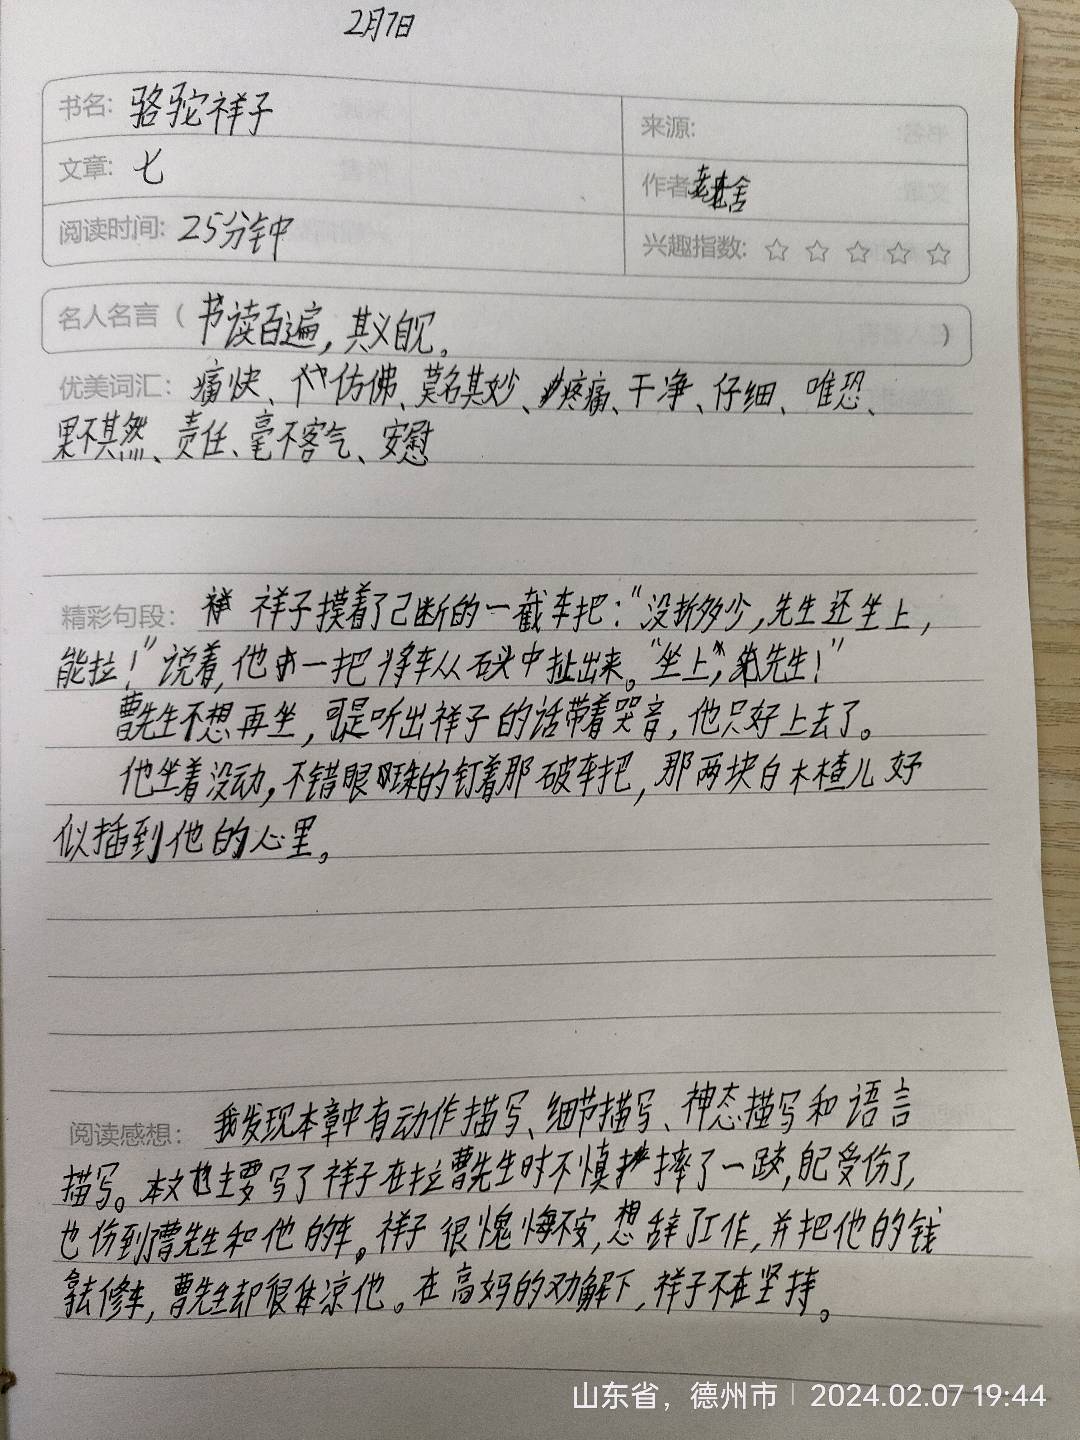 2月7日
书名: 骆驼祥子
来源:
文章: 七
作者: 老舍
阅读时间: 25分钟
兴趣指数: ☆ ☆ ☆ ☆ ☆
名人名言（ 书读百遍，其义自见。 ）
优美词汇: 痛快、仿佛、莫名其妙、疼痛、干净、仔细、唯恐、
果不其然、责任、毫不客气、安慰
精彩句段: 祥子摸着了已断的一截车把：“没折多少，先生还坐上，
能拉！”说着，他一把将车从石头中扯出来。“坐上，先生！”
曹先生不想再坐，可是听出祥子的话带着哭音，他只好上去了。
他坐着没动，不错眼珠的钉着那破车把，那两块白木楂儿好
似插到他的心里。
阅读感想: 我发现本章中有动作描写、细节描写、神态描写和语言
描写。本文主要写了祥子在拉曹先生时不慎摔了一跤，自己受伤了，
也伤到了曹先生和他的车。祥子很愧悔不安，想辞了工作，并把他的钱
拿去修车，曹先生却很体凉他。在高妈的劝解下，祥子不在坚持。
山东省，德州市 | 2024.02.07 19:44